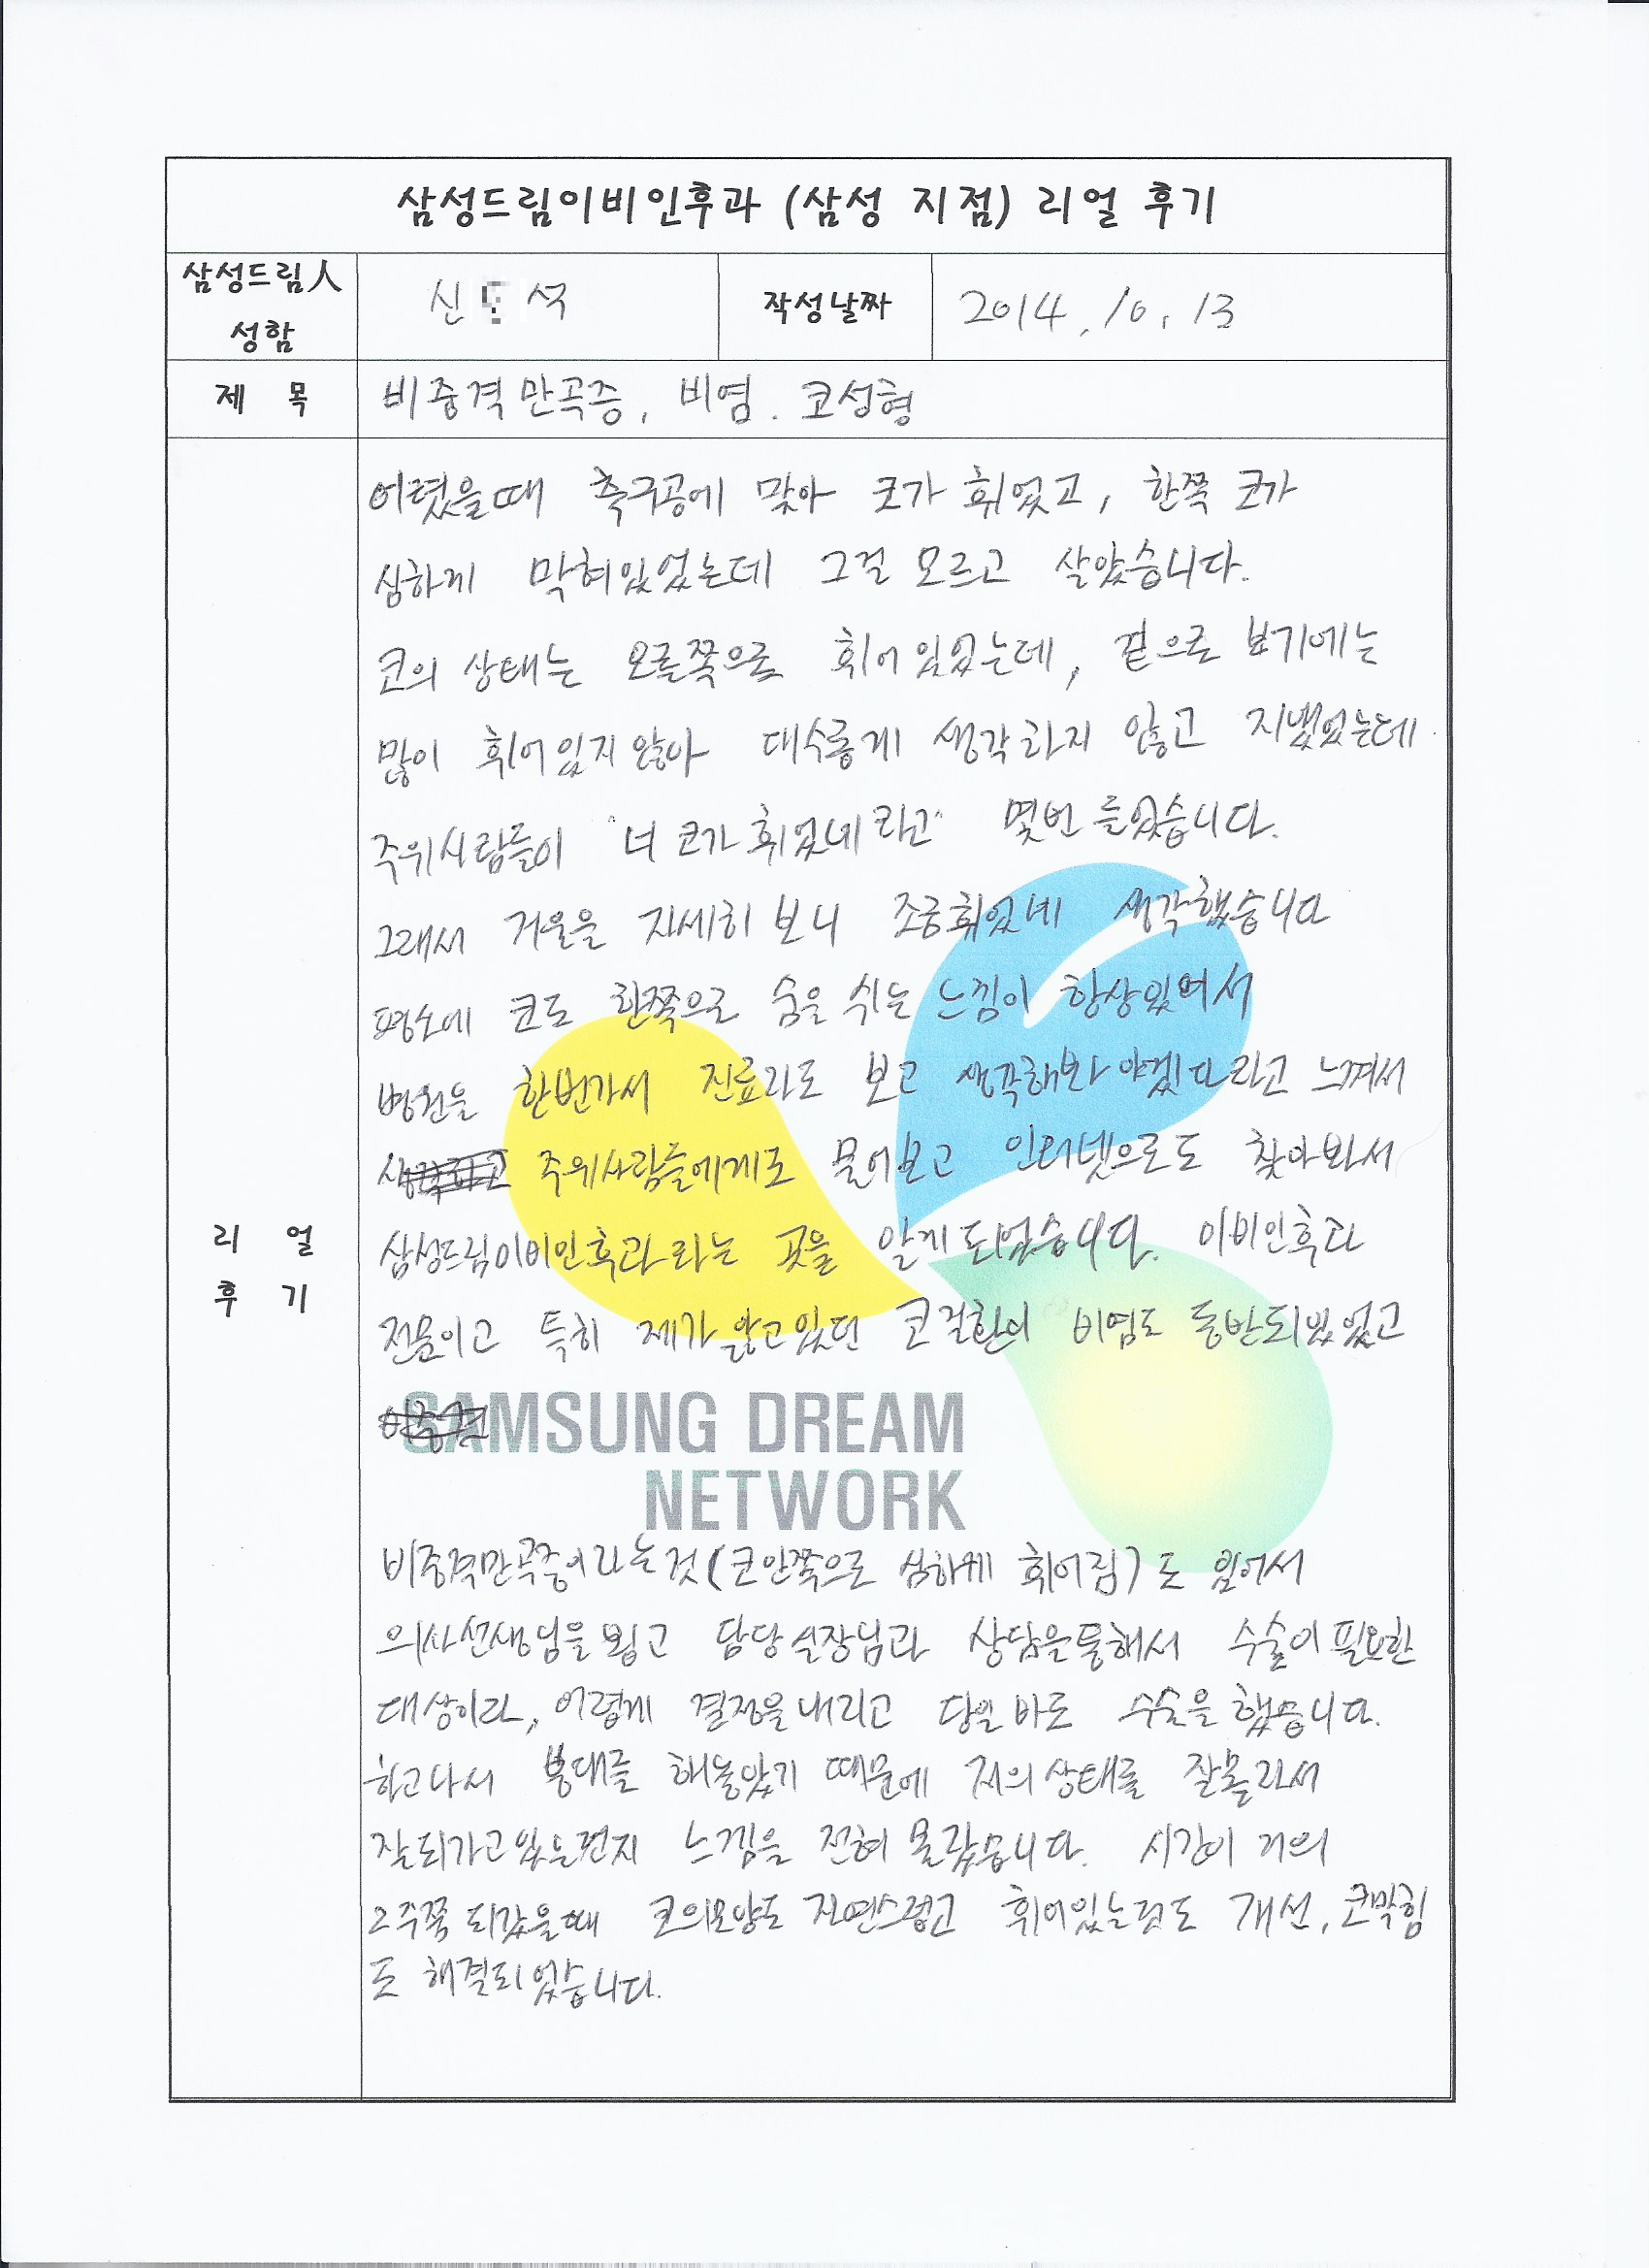 삼성드림이비인후과 (삼성 지점) 리얼 후기
삼성드림人
성함
신 석
작성날짜
2014. 10. 13
제 목
비중격만곡증, 비염. 코성형
어렸을때 축구공에 맞아 코가 휘었고, 한쪽 코가
심하게 막혀있었는데 그걸 모르고 살았습니다.
코의 상태는 오른쪽으로 휘어있었는데, 겉으로 보기에는
많이 휘어있지않아 대수롭게 생각하지 않고 지냈었는데
주위사람들이 "너 코가 휘었네라고" 몇번 들었습니다.
그래서 거울을 자세히 보니 조금휘었네 생각했습니다
평소에 코도 한쪽으로 숨을 쉬는 느낌이 항상있어서
병원을 한번가서 진료라도 보고 생각해봐야겠다라고 느껴서
주위사람들에게도 물어보고 인터넷으로도 찾아봐서
삼성드림이비인후과라는 곳을 알게되었습니다. 이비인후과
리 얼
후 기
전문이고 특히 제가 앓고있던 코질환이 비염도 동반되있었고
SAMSUNG DREAM
NETWORK
비중격만곡증이라는것(코안쪽으로 심하게 휘어짐)도 있어서
의사선생님을 뵙고 담당실장님과 상담을통해서 수술이필요한
대상이라, 어렵게 결정을내리고 당일바로 수술을했습니다.
하고나서 붕대를 해놓았기 때문에 저의상태를 잘몰라서
잘되가고있는건지 느낌을 전혀 몰랐습니다. 시간이 거의
2주쯤 되갔을때 코의모양도 자연스럽고 휘어있는것도 개선, 코막힘
도 해결되었습니다.